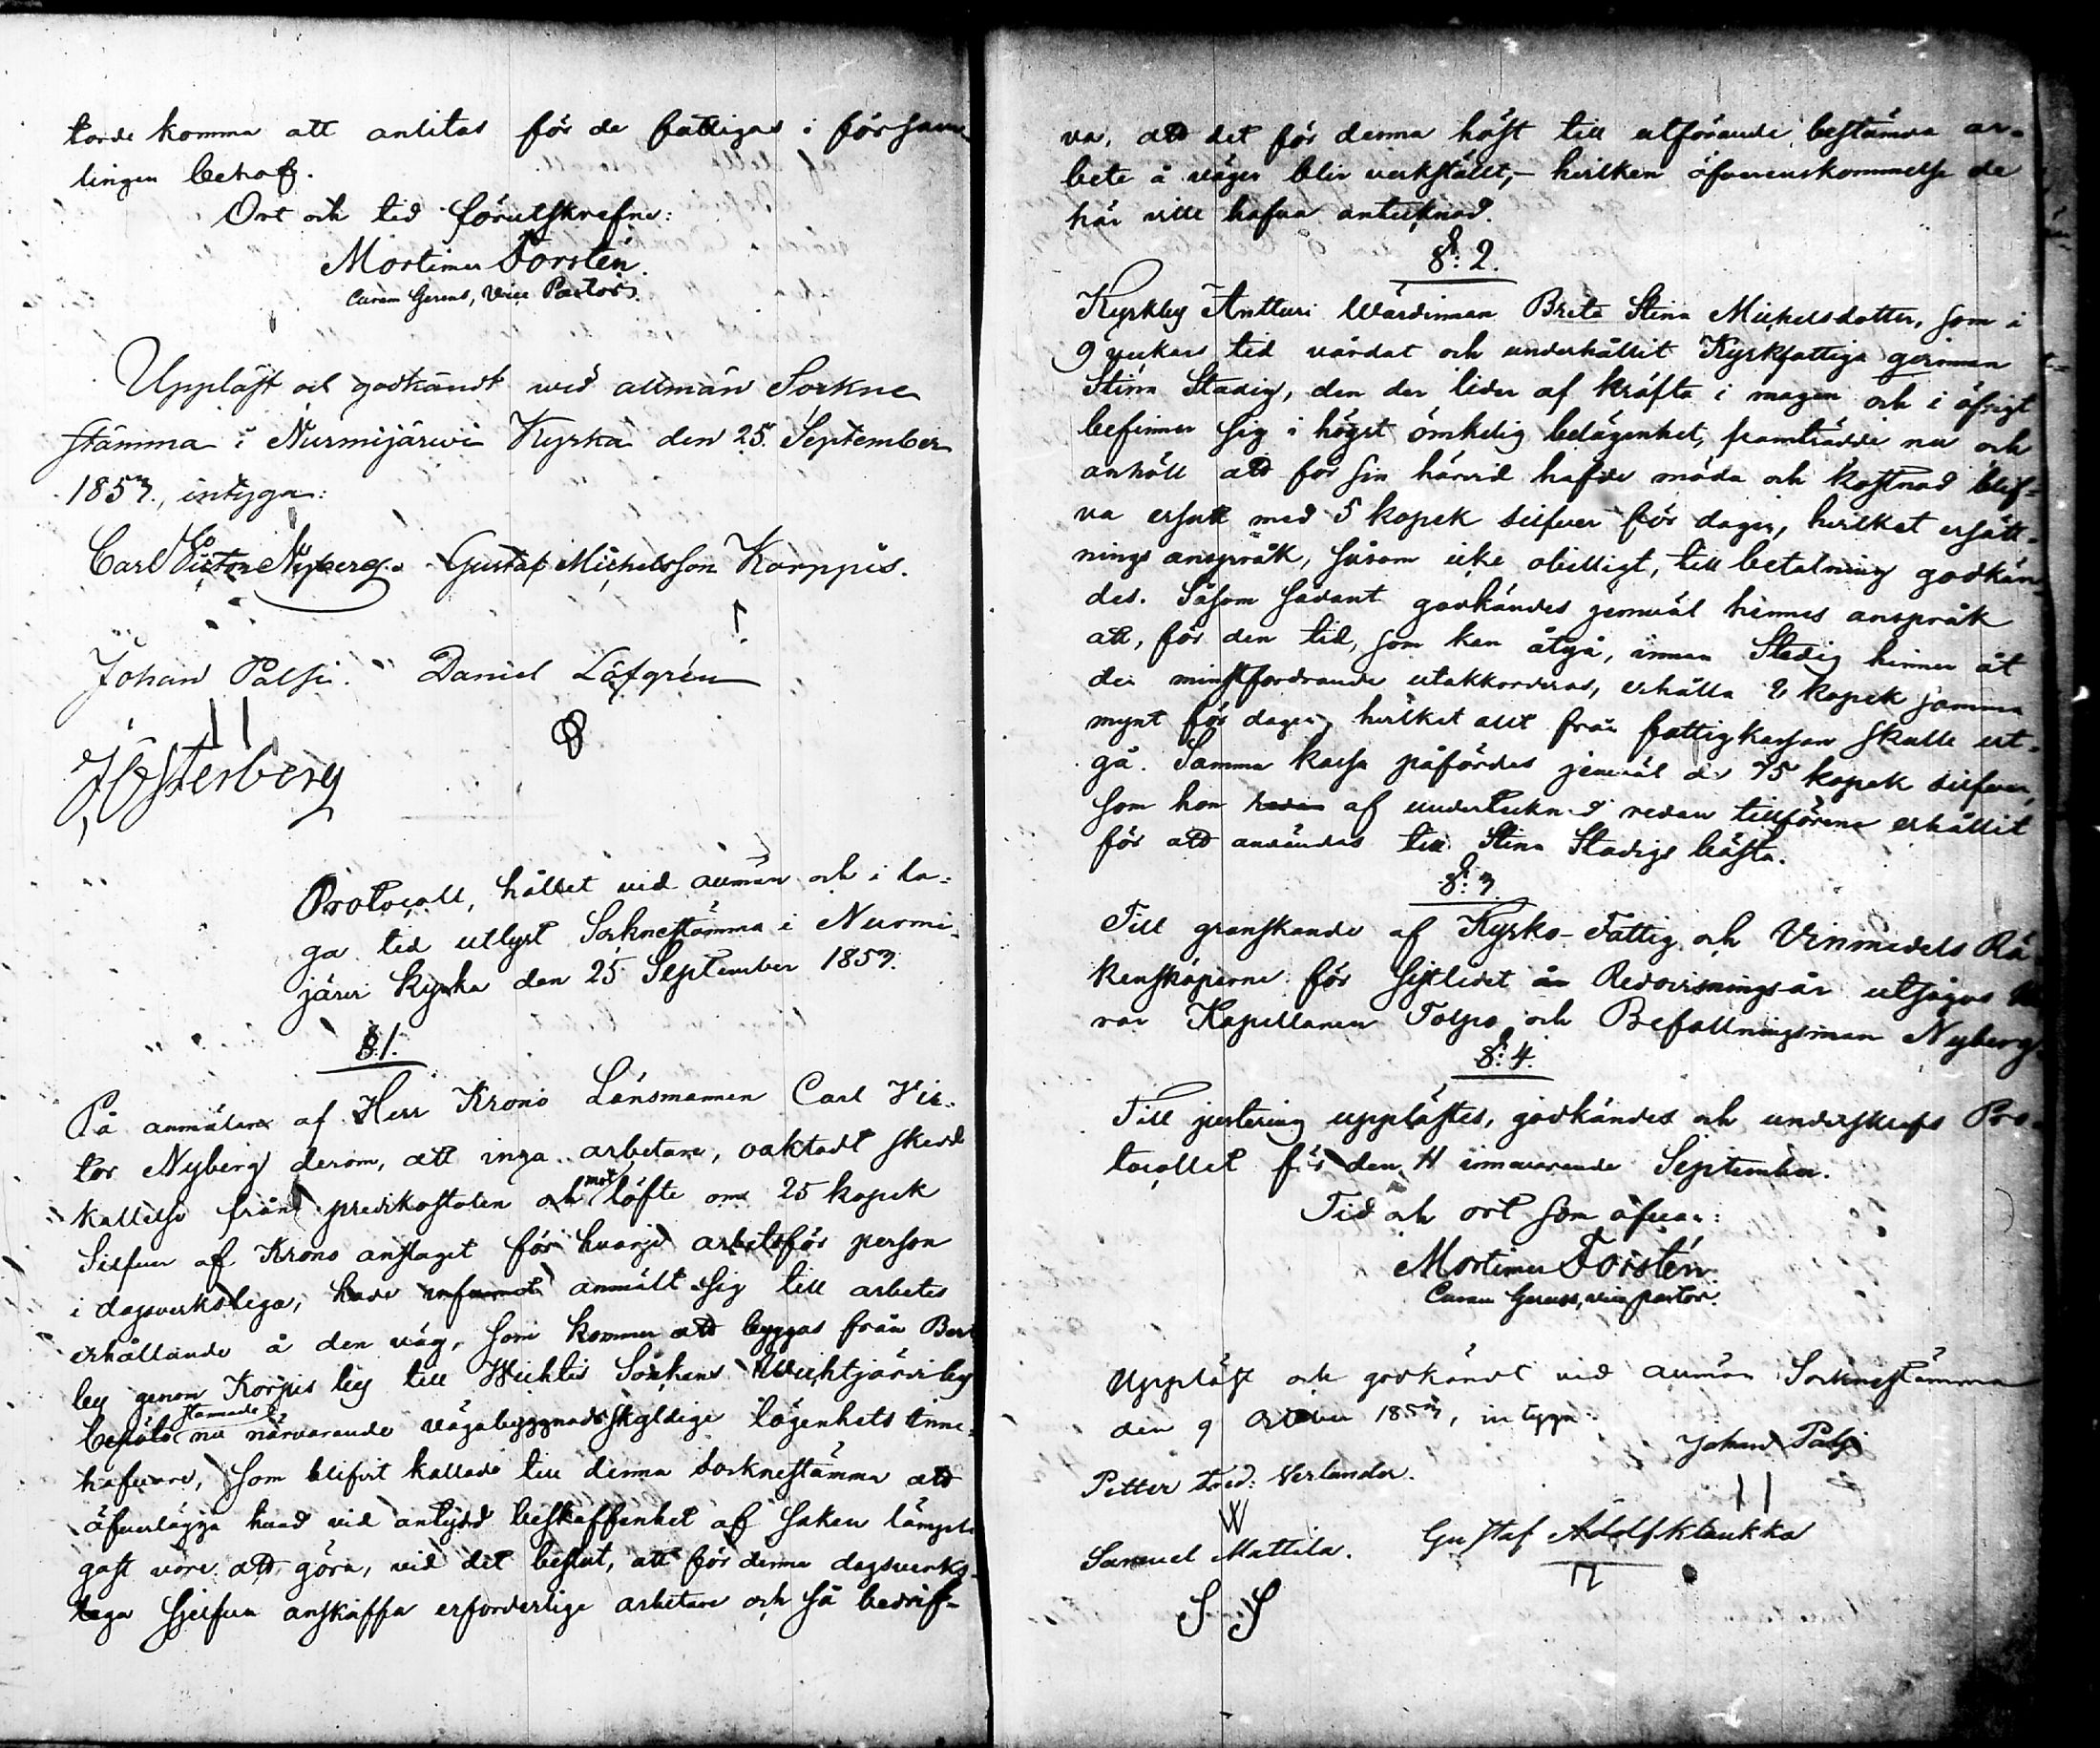 torde komma att anlitas för de fattigas i försam
lingen behof.
Ort och tid förutskrefne:
Mortimer Forstén.
Curam Gerens, Vice Pastor.
Uppläst och godkändt wid allmän Sockne
stämma i Nurmijärwi Kyrka den 25. September
1853., intyga:
Carl Victor Nyberg. Gustaf Michelsson Korppis.
Johan Palsi. Daniel Löfgrén
J Österberg
Protocoll, hållet vid allmän och i la-
ga tid utlyst Socknestämma i Nurmi-
järvi kyrka den 25 September 1853.
§:1.
På anmälan af Herr Krono Länsmannen Carl Vic-
tor Nyberg derom, att inga arbetare, oaktadt skedd
kallelse från predikostolen och mot löfte om 25 kopek
Silfver af Krono anslaget för hvarje arbetsför person
i dagsverkslega, hade anmält sig till arbetes
erhållande å den väg, som kommer att byggas från
by genom Korpis by till Wichtis Sockens Wichtjärvi by
nu närvarande vägabyggnadsskyldige lägenhets Inne-
hafvare, som blifvit kallade till denna Sockne­stämma att
öfverlägga hvad vid antydd beskaffenhet af saken lämpli
gast vore att göra, vid det beslut, att för denna dagsverks-
lega sjelfva anskaffa erforderlige arbetare och så bedrif-
va, att det för denna höst till utförande bestämda ar-
bete å vägen blir verkställt,- hvilken öfverenskommelse de
här ville hafva antecknad.
§: 2.
Kyrkby Antturi Wärdinnan Breta Stina Michelsdotter, som i
9 veckors tid vårdat och underhållit Kyrkfattiga qvinnan
Stina Stadig, den der lider af kräfta i magen och i öfrigt
befinner sig i högst ömkelig belägenhet, framträdde nu och
anhöll att för sin härvid hafde möda och kostnad blif-
va ersatt med 5 kopek silfver för dagen, hvilket ersätt-
nings anspråk, såsom icke obilligt, till betalning godkän-
des. Såsom sådant godkändes jemväl hennes anspråk
att, för den tid, som kan åtgå, innan Stadig hinner åt
den minstfordrande utakkorderas, erhålla 8 kopek samma
mynt för dagen, hvilket allt från fattigkassan skulle ut-
gå. Samma kassa påfördes jemväl de 75 kopek silfver,
som hon af undertecknad redan tillförene erhållit
för att användas till Stina Stadigs bästa.
§: 3.
Till granskande af Kyrko- Fattig och Vinmedels Rä
kenskaperne för sistlidet Redovisningsår utsågos
Kapellanen Tolpo och Befallningsman Nyberg.
§: 4.
Till justering upplästes, godkändes och underskrefs Pro-
tocollet för den 11 innevarande September.
Tid och ort som ofvan:
Mortimer Forstén.
Curam Gerens, vice pastor.
Uppläst och godkändt vid allmän Sockne­stämma
den 9 October 1853, intyga:
Johan Palsi
Petter Fred: Verlander.
W
Samuel Mattila. Gustaf Adolf Klaukka
S S